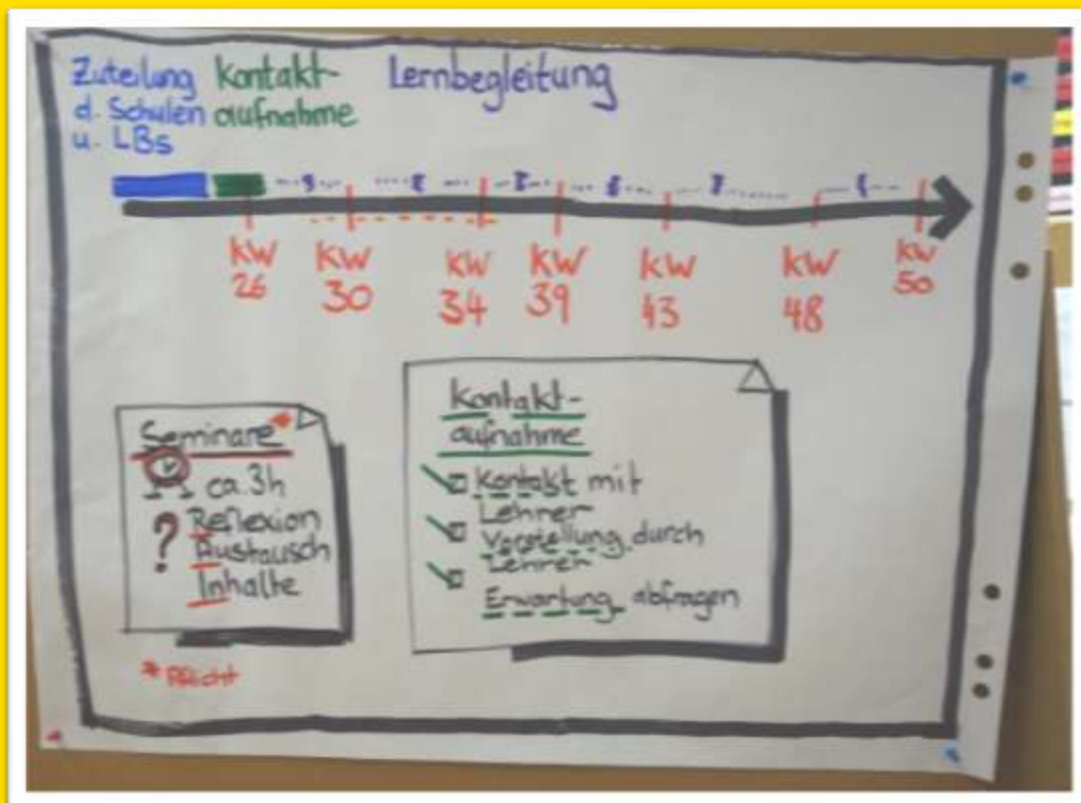 Zuteilung
d. Schulen
u. LBs
Kontakt-
aufnahme
Lernbegleitung
KW
26
KW
30
KW
34
KW
39
KW
43
KW
48
KW
50
Seminare*
ca. 3h
? Reflexion
Austausch
Inhalte
*Pflicht
Kontakt-
aufnahme
Kontakt mit
Lehrer
Vorstellung durch
Lehrer
Erwartung abfragen